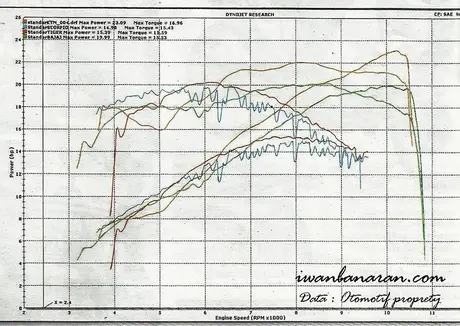 DYNOJET RESEARCH
CF: SAE
Max Power = 23.09 Max Torque = 16.96
Max Power = 14.98 Max Torque = 15.43
StandarTIGER Max Power = 15.39 Max Torque = 15.59
StandarBAJAJ Max Power = 19.99 Max Torque = 15.53
28
26
24
22
20
18
16
14
12
10
8
6
4
2
Power (hp)
X = 2.4
2 3 4 5 6 7 8 9 10 11
Engine Speed (RPM x1000)
iwanbanaran.com
Data : Otomotif proprety